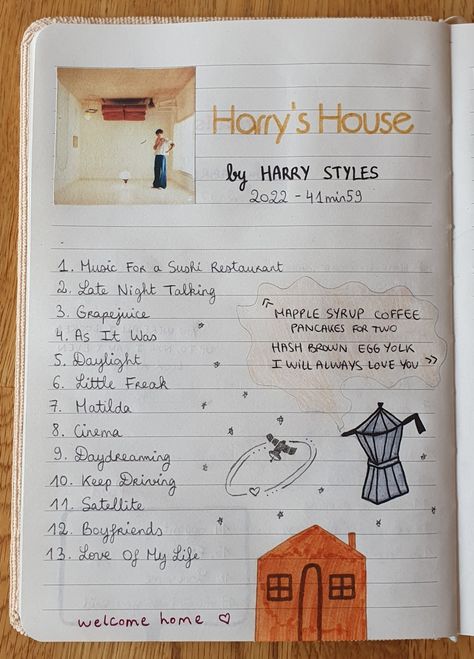 Harry's House
by HARRY STYLES
2022 - 41min59
1. Music For a Sushi Restaurant
2. Late Night Talking
3. Grapejuice
4. As It Was
5. Daylight
6. Little Freak
7. Matilda
8. Cinema
9. Daydreaming
10. Keep Driving
11. Satellite
12. Boyfriends
13. Love Of My Life
« MAPPLE SYRUP COFFEE
PANCAKES FOR TWO
HASH BROWN EGG YOLK
I WILL ALWAYS LOVE YOU »
welcome home ♡